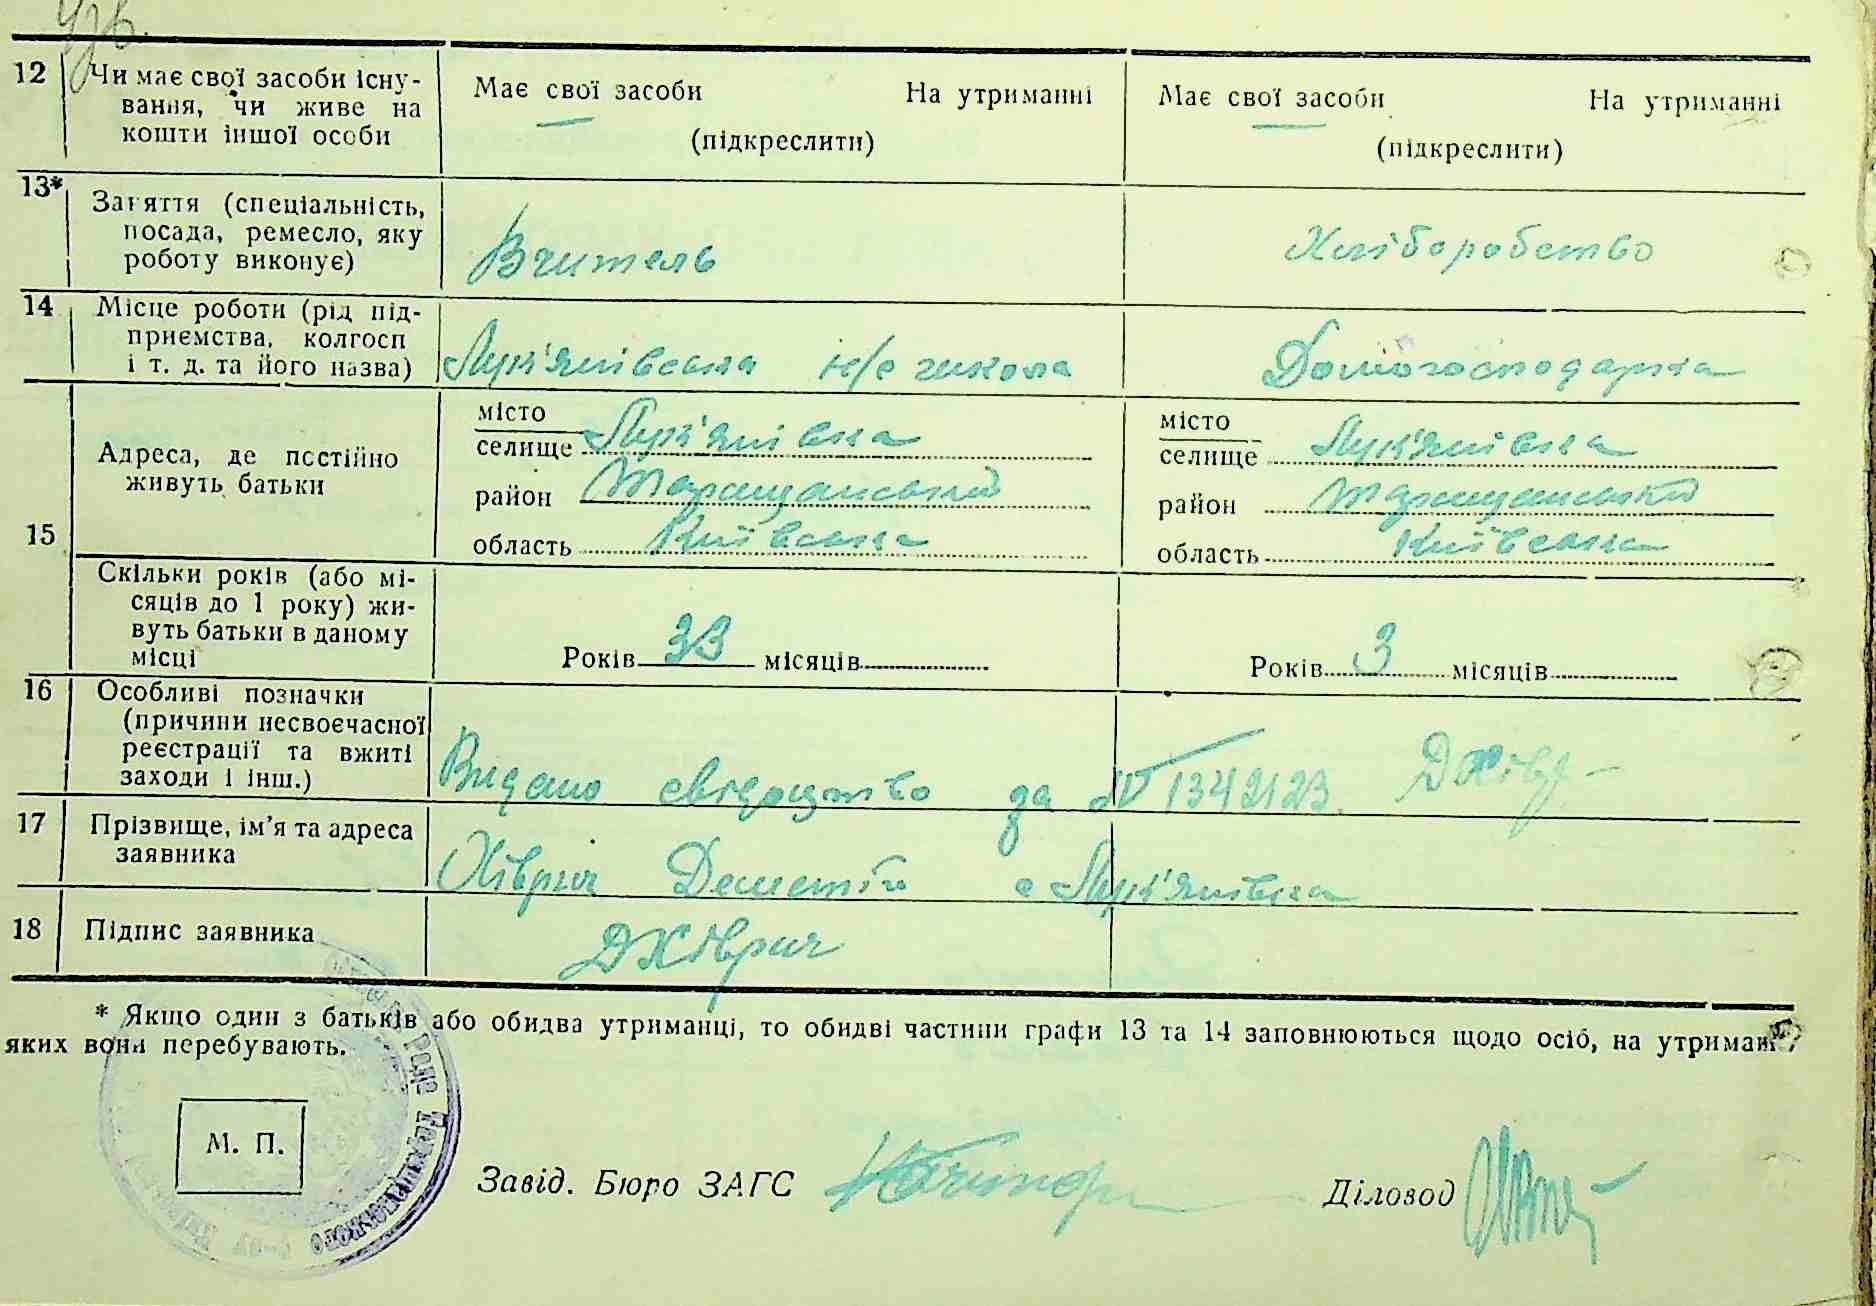 12 Чи має свої засоби існу- Має свої засоби На утриманні Має свої засоби На утриманні
вання, чи живе на
кошти іншої особи (підкреслити) (підкреслити)
13* Заняття (спеціальність,
посада, ремесло, яку Вчитель Хліборобство
роботу виконує)
14 Місце роботи (рід під-
приємства, колгосп
і т. д. та його назва) Лук'янівська н/с школа Домогосподарка
15 Адреса, де постійно
живуть батьки
місто
селище Лук'янівка
район Таращанський
область Київська
місто
селище Лук'янівка
район Таращанський
область Київська
Скільки років (або мі-
сяців до 1 року) жи-
вуть батьки в даному
місці Років 33 місяців Років 3 місяців
16 Особливі позначки
(причини несвоєчасної
реєстрації та вжиті
заходи і інш.) Видано свідоцтво за № 1342123. ДХівр
17 Прізвище, ім'я та адреса
заявника Хіврич Дементій с Лук'янівка
18 Підпис заявника ДХіврич
* Якщо один з батьків або обидва утриманці, то обидві частини графи 13 та 14 заповнюються щодо осіб, на утриманні
яких вони перебувають.
М. П.
Завід. Бюро ЗАГС Діловод